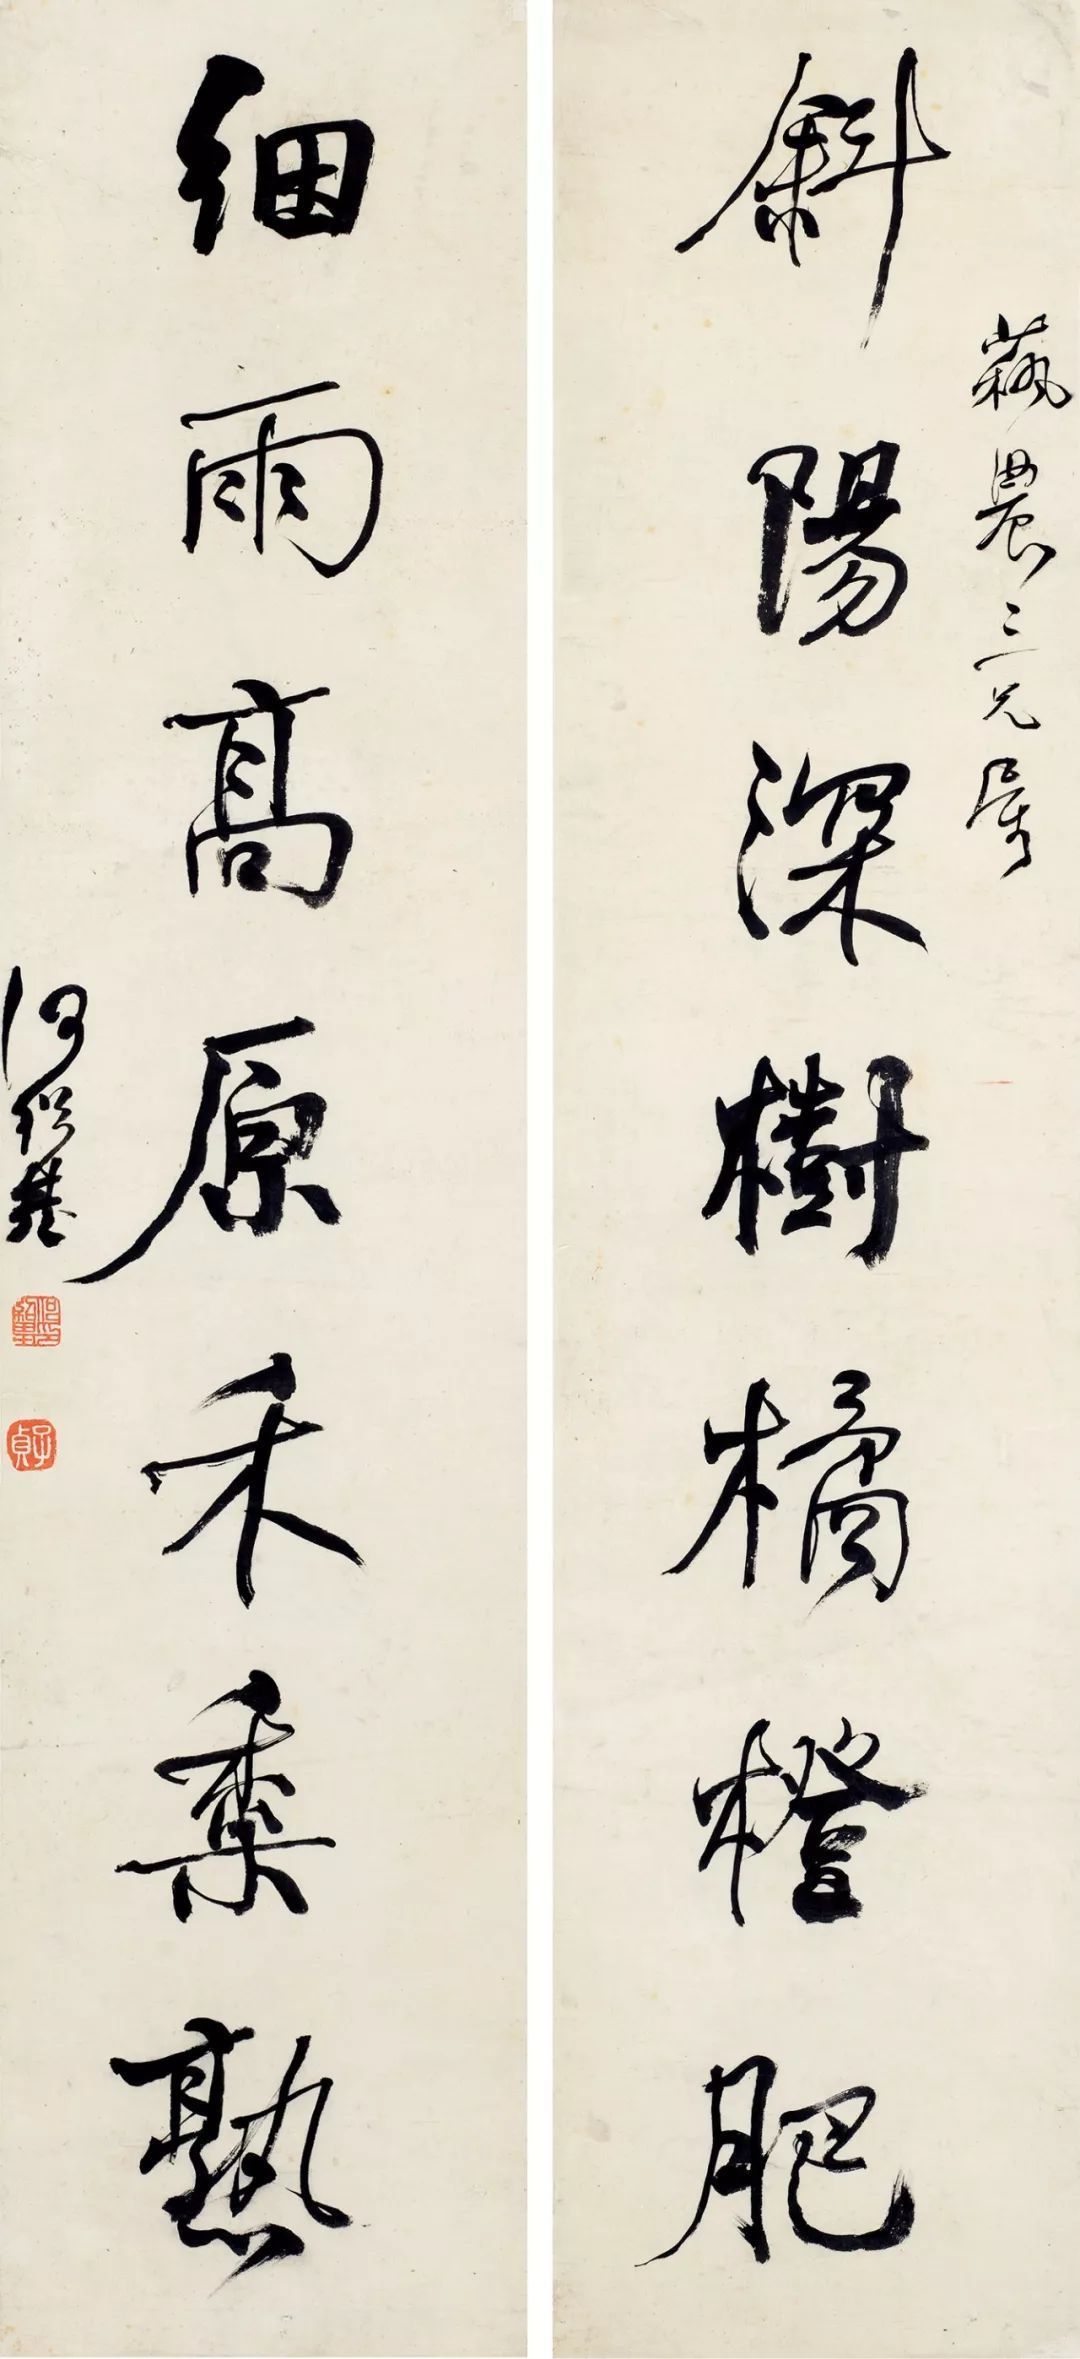 斜陽深樹橘橙肥
蓺農三兄屬
細雨高原禾黍熟
何紹基
子貞